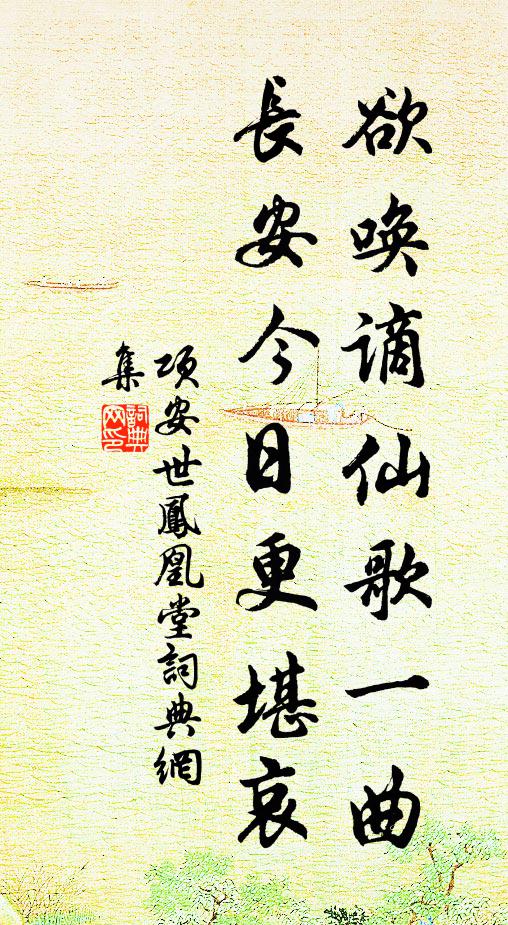 欲喚謫仙歌一曲
長安今日更堪哀
項安世鳳凰堂詞典網
集
詞典
网印